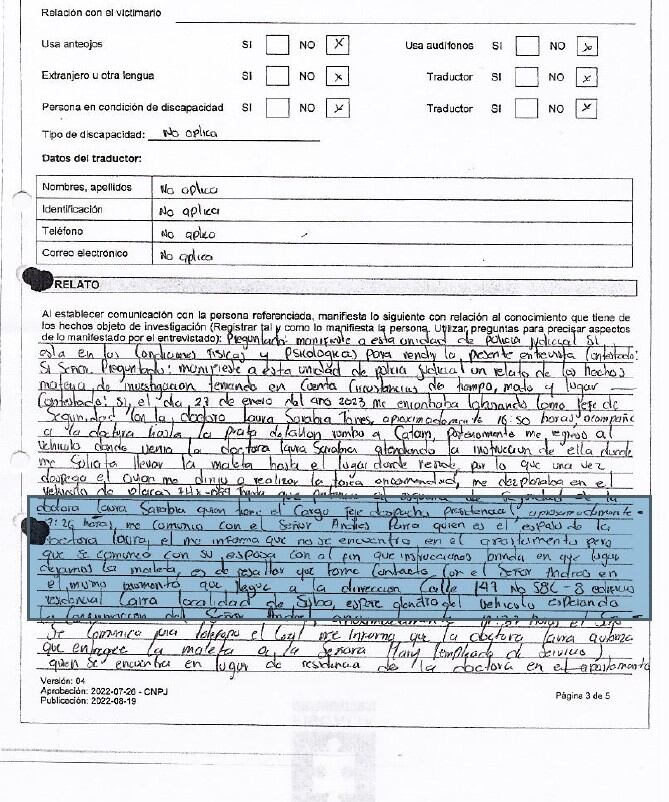 Relación con el victimario
Usa anteojos SI NO X Usa audífonos SI NO X
Extranjero u otra lengua SI NO X Traductor SI NO X
Persona en condición de discapacidad SI NO X Traductor SI NO X
Tipo de discapacidad: No aplica
Datos del traductor:
Nombres, apellidos No aplica
Identificación No aplica
Teléfono No aplica
Correo electrónico No aplica
RELATO
Al establecer comunicación con la persona referenciada, manifiesta lo siguiente con relación al conocimiento que tiene de
los hechos objeto de investigación (Registrar tal y como lo manifiesta la persona. Utilizar preguntas para precisar aspectos
de lo manifestado por el entrevistado): Preguntado manifieste a esta unidad de policia judicial si
esta en las condiciones fisicas y psicologicas para rendir la presente entrevista contestado:
Si Señor. Preguntado: manifieste a esta unidad de policia judicial un relato de los hechos
materia de investigacion teniendo en cuenta circunstancias de tiempo, modo y lugar
Contestado: Si, el dia 23 de enero del año 2023 me encontraba laborando como Jefe de
Seguridad con la doctora Laura Sarabia Torres, aproximadamente 16:50 horas acompañe
a la doctora hasta la rumbo a Catam, posteriormente me regreso al
vehiculo donde venia la doctora Laura Sarabia la instruccion de ella donde
me Solicita llevar la maleta hasta el lugar donde reside, por lo que una vez
despego el avion me dirijo a realizar la tarea encomendada, me desplazaba en el
vehiculo de placas que el esquema de seguridad de la
doctora Laura Sarabia quien tiene el Cargo Jefe despacho presidencial, aproximadamente
horas, me comunico con el Señor Andres Parra quien es el esposo de la
doctora Laura, el me informa que no se encuentra en el apartamento pero
que se comunico con su esposa con al fin que instrucciones brinda en que lugar
dejamos la maleta, es de resaltar que tome contacto con el Señor Andres en
el mismo momento que llegue a la direccion Calle 147 No 58C - edificio
residencial localidad de Suba, espere dentro del vehiculo esperando
la comunicacion del Señor Andres, horas el
Se comunica via telefono el cual me informa que la doctora Laura autoriza
que entregue la maleta a la Señora Mary (empleada de Servicio)
quien se encuentra en lugar de residencia de la doctora en el apartamento
Versión: 04
Aprobación: 2022-07-26 - CNPJ
Publicación: 2022-08-19
Página 3 de 5